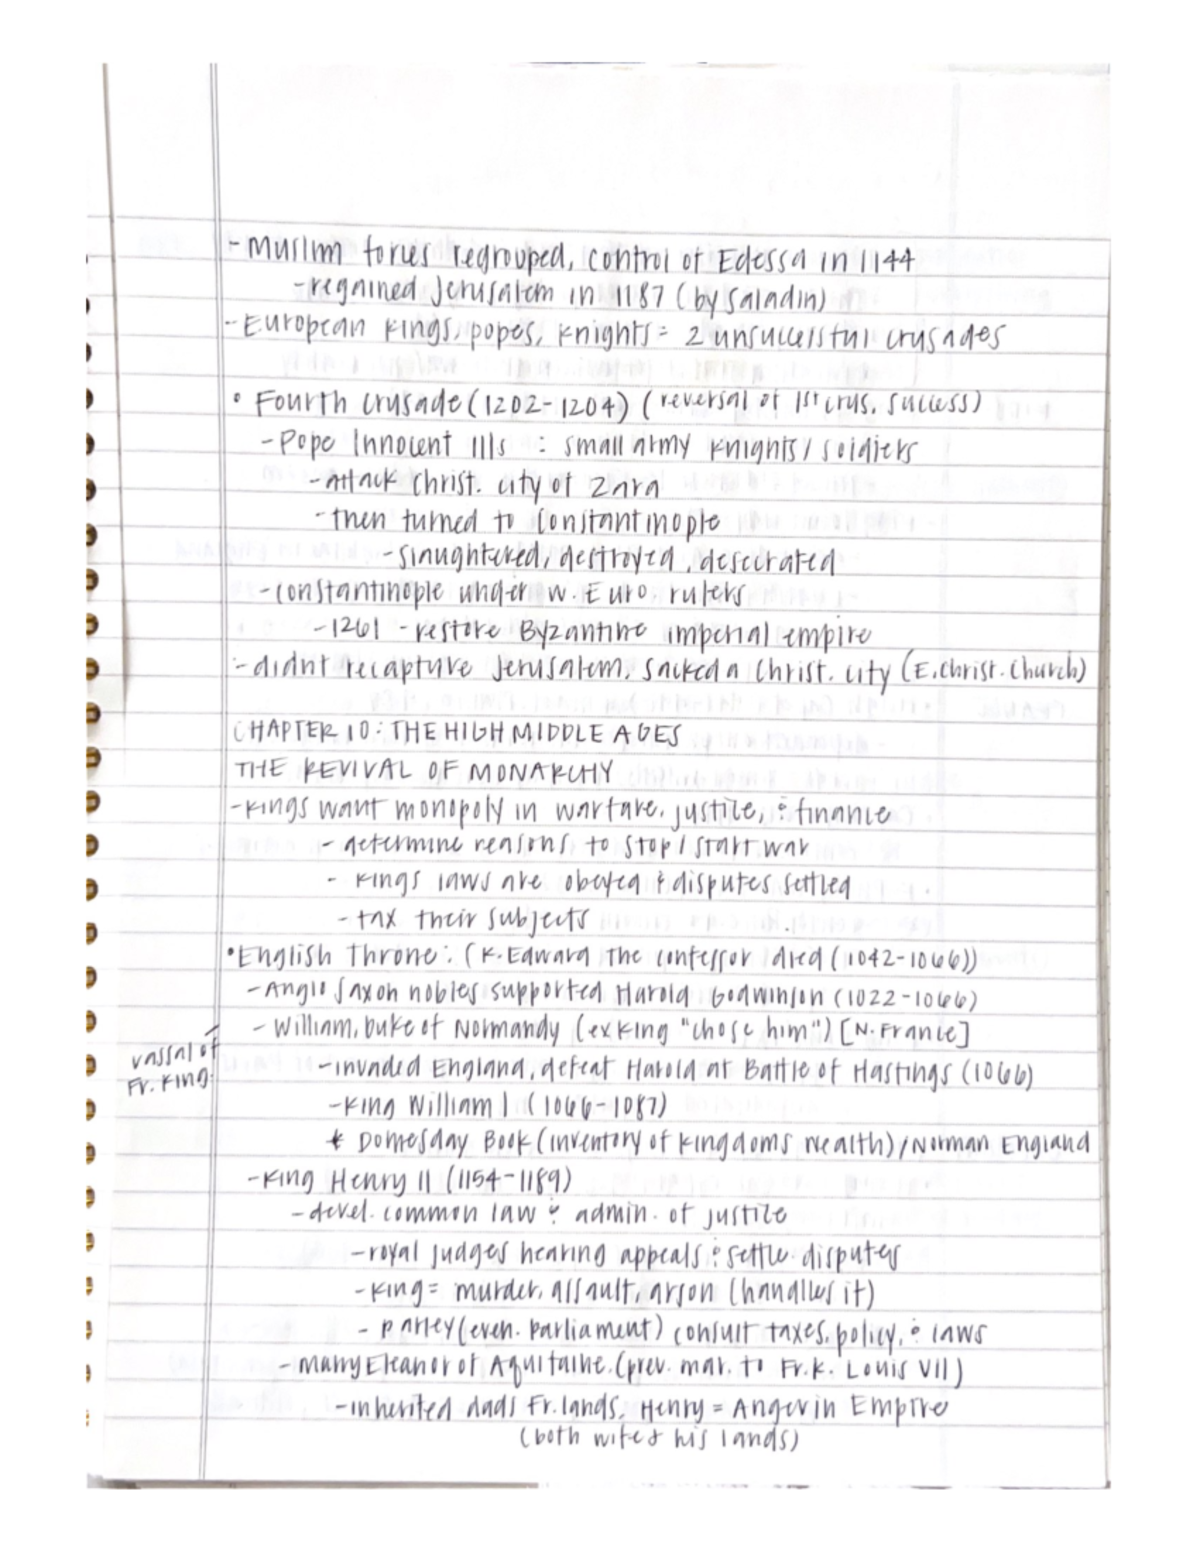 - Muslim forces regrouped, control of Edessa in 1144
- regained Jerusalem in 1187 (by Saladin)
- European kings, popes, knights = 2 unsuccessful crusades
• Fourth Crusade (1202-1204) (reversal of 1st crus. success)
- Pope Innocent IIIs : small army knights/soldiers
- attack Christ. city of Zara
- then turned to Constantinople
- slaughtered, destroyed, desecrated
- Constantinople under w. Euro. rulers
- 1261 - restore Byzantine imperial empire
- didnt recapture Jerusalem, sacked a Christ. city (E. Christ. Church)
CHAPTER 10: THE HIGH MIDDLE AGES
THE REVIVAL OF MONARCHY
- kings want monopoly in warfare, justice, & finance
- determine reasons to stop/start war
- kings laws are obeyed & disputes settled
- tax their subjects
• English Throne: (K. Edward the confessor died (1042-1066))
- Anglo Saxon nobles supported Harold Godwinson (1022-1066)
- William, Duke of Normandy (ex king "chose him") [N. France]
vassal of
Fr. King
- invaded England, defeat Harold at Battle of Hastings (1066)
- King William I (1066-1087)
* Domesday Book (inventory of kingdoms wealth)/Norman England
- King Henry II (1154-1189)
- devel. common law & admin. of justice
- royal judges hearing appeals & settle disputes
- king = murder, assault, arson (handles it)
- Parley (even. Parliament) consult taxes, policy, & laws
- Marry Eleanor of Aquitaine. (prev. mar. to Fr. K. Louis VII)
- inherited dads Fr. lands, Henry = Angevin Empire
(both wife & his lands)